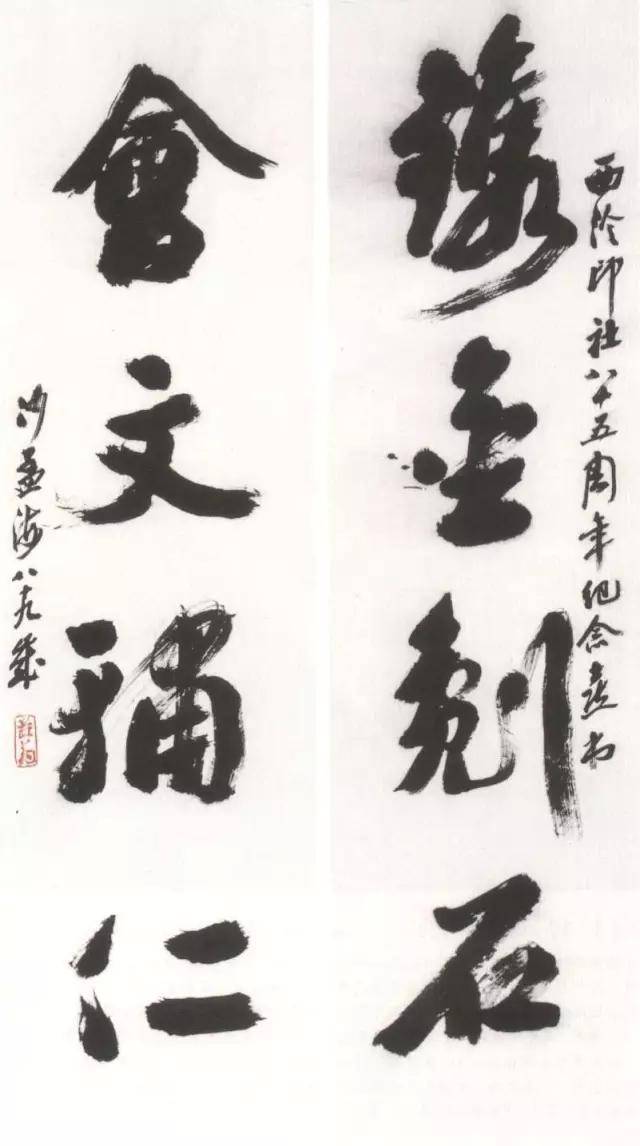 西泠印社八十五周年紀念書
金石
會文輔仁
沙孟海八十九歲